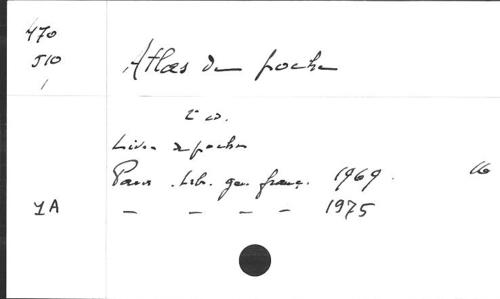 470
J10
1
Atlas de poche
2e éd.
Livre de poche
Paris . Lib. gen. franç. 1969. 16
1A — — — — 1975